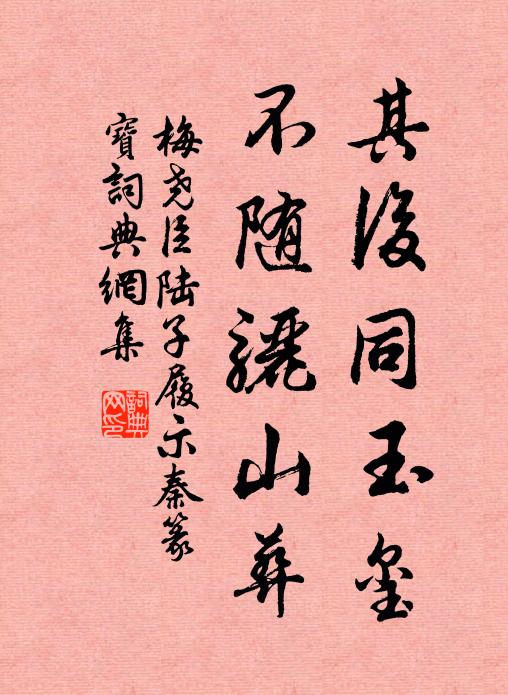 其後同玉璽
不随驪山葬
梅尧臣陸子履示秦篆
寶詞典網集
詞典
网印